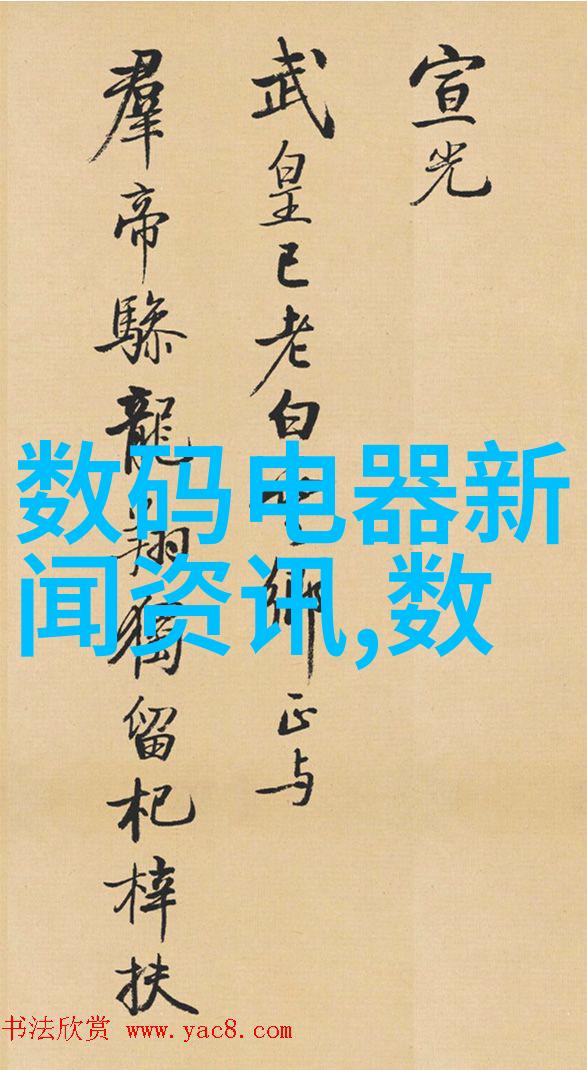 宣光
武皇已老白雲鄉正与
羣帝驂龍翔獨留杞梓扶
数码电器新
闻资讯,数
书法欣赏 www.yac8.com